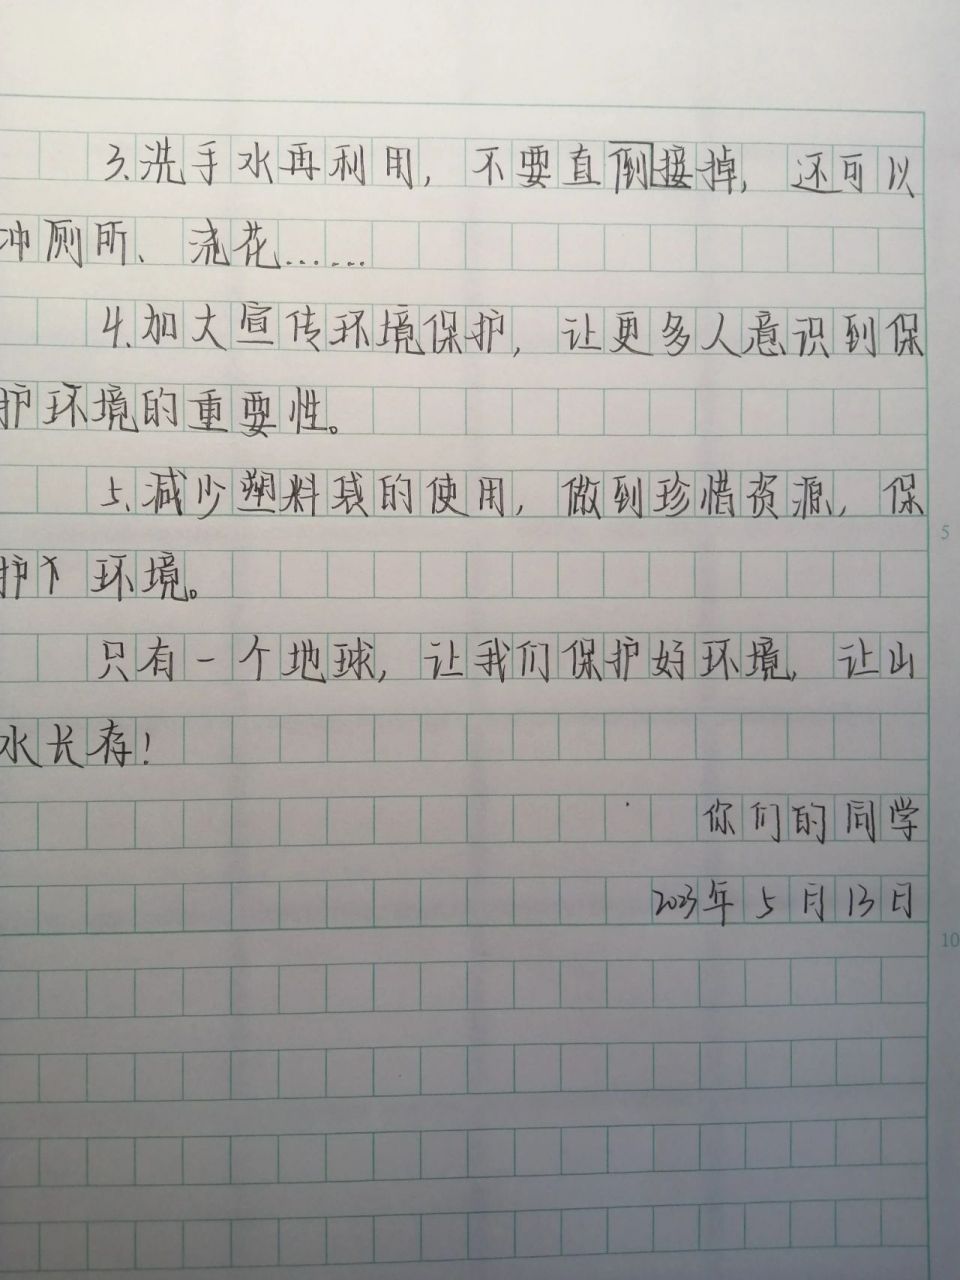 3.洗手水再利用，不要直倒接掉，还可以
冲厕所、浇花……
4.加大宣传环境保护，让更多人意识到保
护环境的重要性。
5.减少塑料袋的使用，做到珍惜资源，保
护环境。
只有一个地球，让我们保护好环境，让山
水长存！
你们的同学
2023年5月13日
5
10